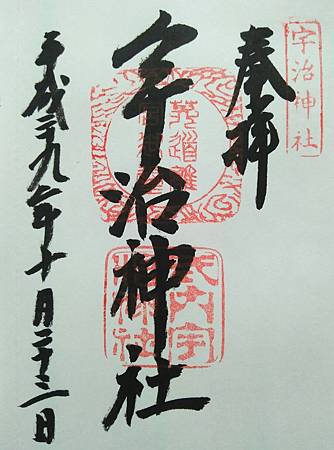 宇治神社
奉拝
宇治神社
菟道稚
式内宇
治神社
平成二九年十月二十三日